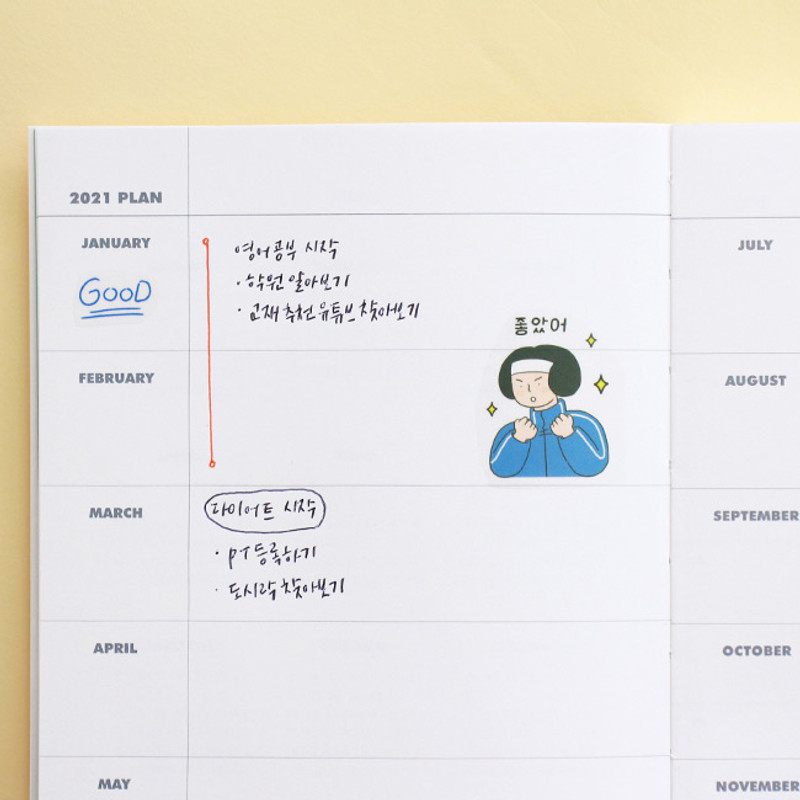 2021 PLAN
JANUARY
GOOD
영어공부 시작
· 학원 알아보기
· 교재 추천 유튜브 찾아보기
좋았어
FEBRUARY
MARCH
다이어트 시작
· PT 등록하기
· 도시락 찾아보기
APRIL
MAY
JULY
AUGUST
SEPTEMBER
OCTOBER
NOVEMBER